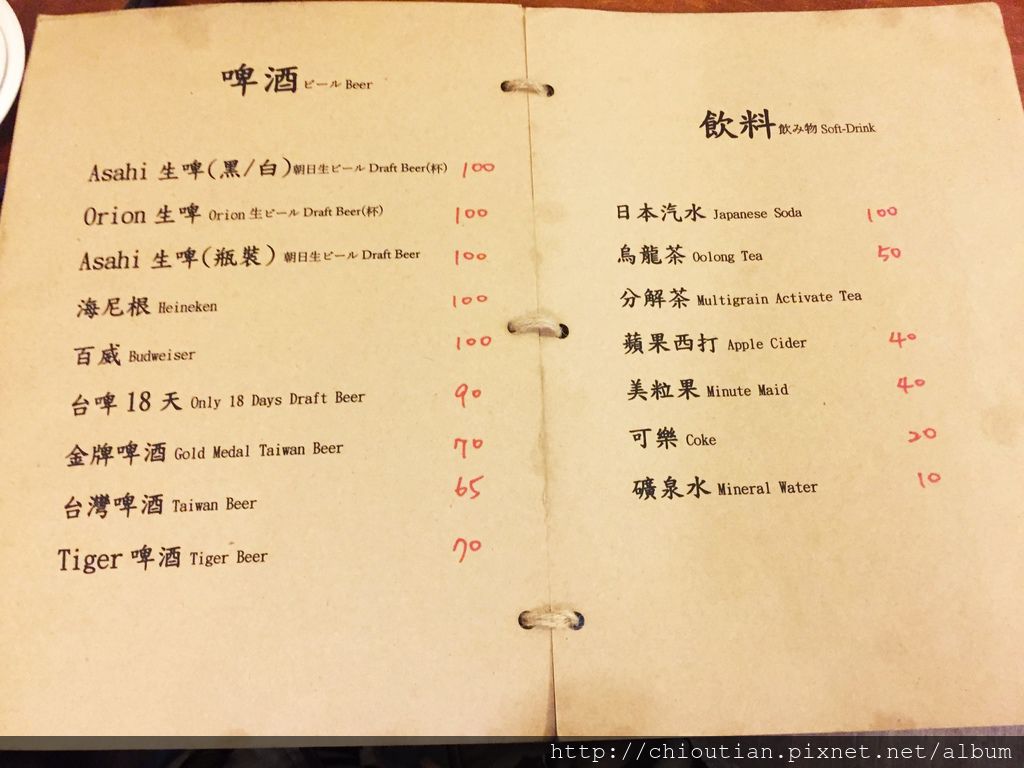 啤酒 ビール Beer
Asahi 生啤(黑/白) 朝日生ビール Draft Beer(杯) 100
Orion 生啤 Orion 生ビール Draft Beer(杯) 100
Asahi 生啤(瓶裝) 朝日生ビール Draft Beer 100
海尼根 Heineken 100
百威 Budweiser 100
台啤 18 天 Only 18 Days Draft Beer 90
金牌啤酒 Gold Medal Taiwan Beer 70
台灣啤酒 Taiwan Beer 65
Tiger 啤酒 Tiger Beer 70
飲料 飲み物 Soft-Drink
日本汽水 Japanese Soda 100
烏龍茶 Oolong Tea 50
分解茶 Multigrain Activate Tea
蘋果西打 Apple Cider 40
美粒果 Minute Maid 40
可樂 Coke 20
礦泉水 Mineral Water 10
http://chioutian.pixnet.net/album